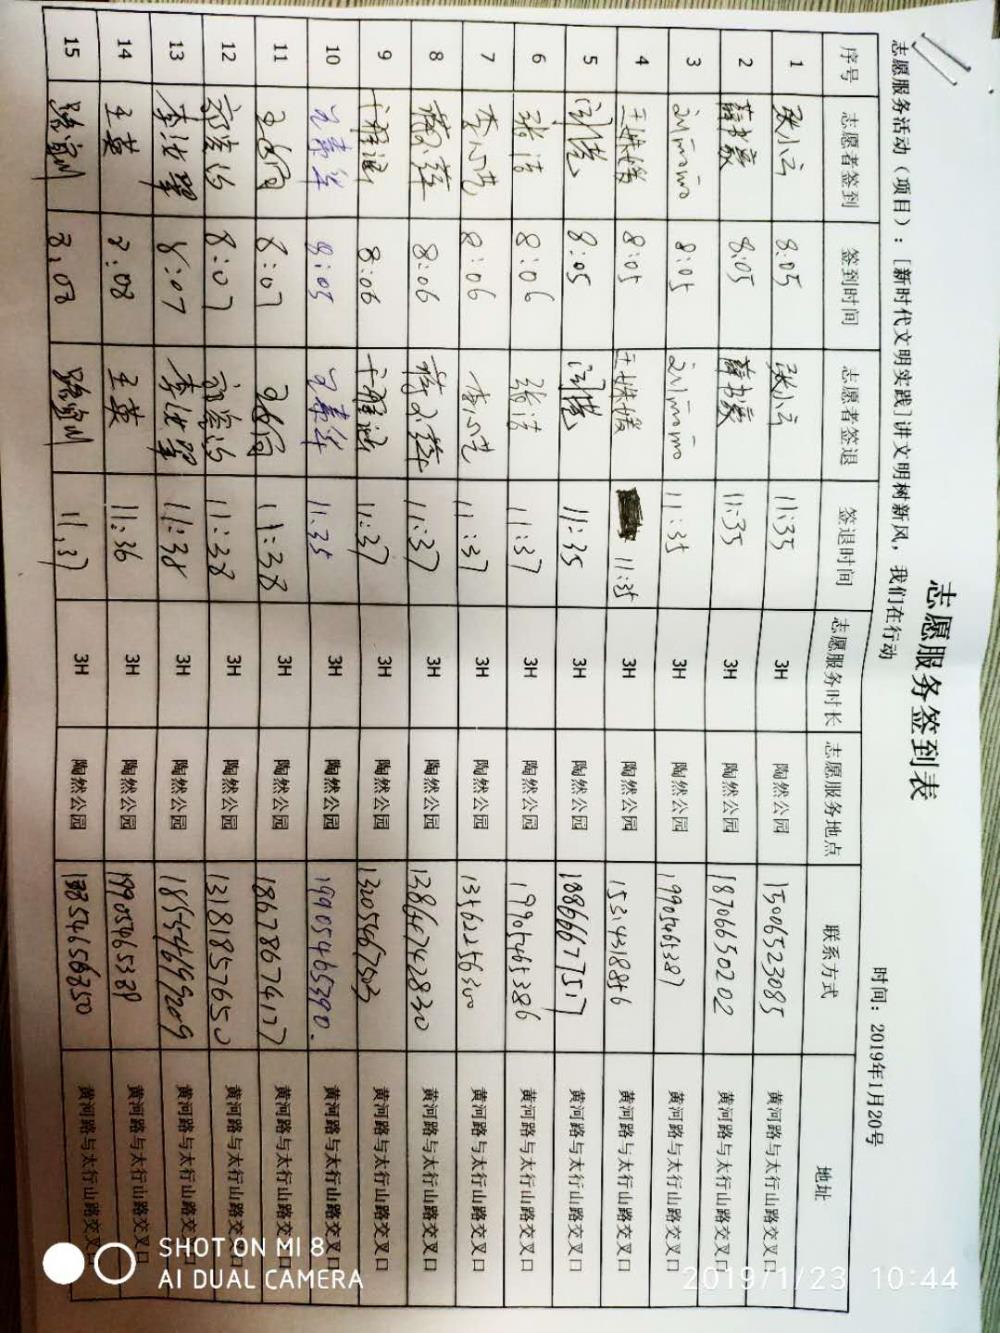 志愿服务签到表
时间：2019年1月20号
志愿服务活动（项目）：[新时代文明实践]讲文明树新风，我们在行动
序号 志愿者签到 签到时间 志愿者签退 签退时间 志愿服务时长 志愿服务地点 联系方式 地址
1 张小云 8:05 张小云 11:35 3H 陶然公园 15006523085 黄河路与太行山路交叉口
2 8:05 11:35 3H 陶然公园 18706650202 黄河路与太行山路交叉口
3 8:05 11:35 3H 陶然公园 19905465387 黄河路与太行山路交叉口
4 8:05 11:35 3H 陶然公园 15314318856 黄河路与太行山路交叉口
5 8:05 11:35 3H 陶然公园 18866677517 黄河路与太行山路交叉口
6 张洁 8:06 张洁 11:37 3H 陶然公园 19905465386 黄河路与太行山路交叉口
7 李心艺 8:06 李心艺 11:37 3H 陶然公园 13562256300 黄河路与太行山路交叉口
8 8:06 11:37 3H 陶然公园 13864742830 黄河路与太行山路交叉口
9 8:06 11:37 3H 陶然公园 13205467503 黄河路与太行山路交叉口
10 8:05 11:35 3H 陶然公园 19905465390. 黄河路与太行山路交叉口
11 8:07 11:38 3H 陶然公园 18678674177 黄河路与太行山路交叉口
12 8:07 11:38 3H 陶然公园 13181857650 黄河路与太行山路交叉口
13 8:07 11:38 3H 陶然公园 18554619209 黄河路与太行山路交叉口
14 王英 8:08 王英 11:36 3H 陶然公园 19905465389 黄河路与太行山路交叉口
15 8:08 11:37 3H 陶然公园 黄河路与太行山路交叉口
SHOT ON MI 8
AI DUAL CAMERA
2019/1/23 10:44